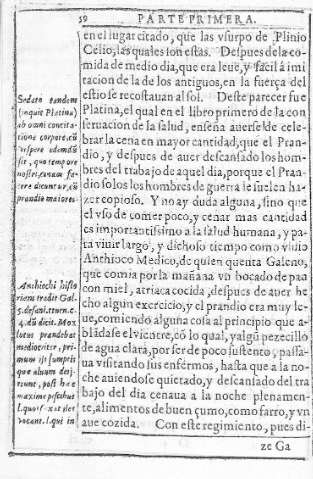 59 PARTE PRIMERA.
en el lugar citado, que las vsurpo de Plinio
Celio, las quales son estas. Despues de la co-
mida de medio dia, que era leue, y facil à imi
tacion de la de los antiguos, en la fuerça del
estio se recostauan al sol. Deste parecer fue
Platina, el qual en el libro primero de la con
seruacion de la salud, enseña auerse de cele-
brar la cena en mayor cantidad, que el Pran-
dio, y despues de auer descansado los hom-
bres del trabajo de aquel dia, porque el Pran
dio solo los hombres de guerra le suelen ha-
zer copioso. Y no ay duda alguna, sino que
el vso de comer poco, y cenar mas cantidad
es importantissimo a la salud humana, y pa-
ra viuir largo, y dichoso tiempo como viuio
Anthioco Medico, de quien quenta Galeno,
que comia por la mañana vn bocado de pan
con miel, atriaca cocida, despues de auer he
cho algun exercicio, y el prandio era muy le
ue, comiendo alguna cosa al principio que a-
bládase el vientre, cõ lo qual, y algũ pezecillo
de agua clara, por ser de poco sustento, passa-
ua visitando sus enfermos, hasta que a la no-
che auiendose quietado, y descansado del tra
bajo del dia cenaua a la noche plenamen-
te, alimentos de buen çumo, como farro, y vn
aue cozida. Con este regimiento, pues di-
ze Ga
Sedato tandem
(inquit Platina)
ab omni concita-
tione corpore, cũ
vespere edendũ
sit, quo tempore
nostri, cœnam fa-
cere dicuntur, cũ
prandio maiores
Anthiochi histo
riam tradit Gal-
5. de sani. tuen. c.
4. dũ dicit. Mox
lotus prandebat
mediocriter, pri-
mum ijs sumptis
que aluum deij-
ciunt, post hæc
maxime piscibus